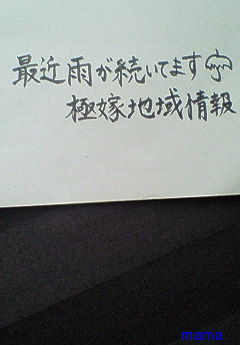 最近雨が続いてます
極嫁地域情報
mama